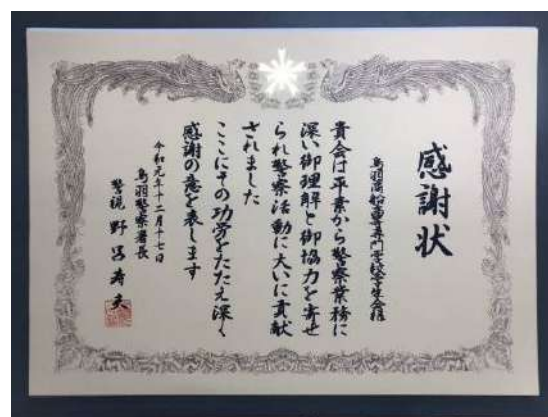 感謝状
鳥羽商船高等専門学校学生会殿
貴会は平素から警察業務に
深い御理解と御協力を寄せ
られ警察活動に大いに貢献
されました
ここにその功労をたたえ深く
感謝の意を表します
令和元年十二月十七日
鳥羽警察署長
警視